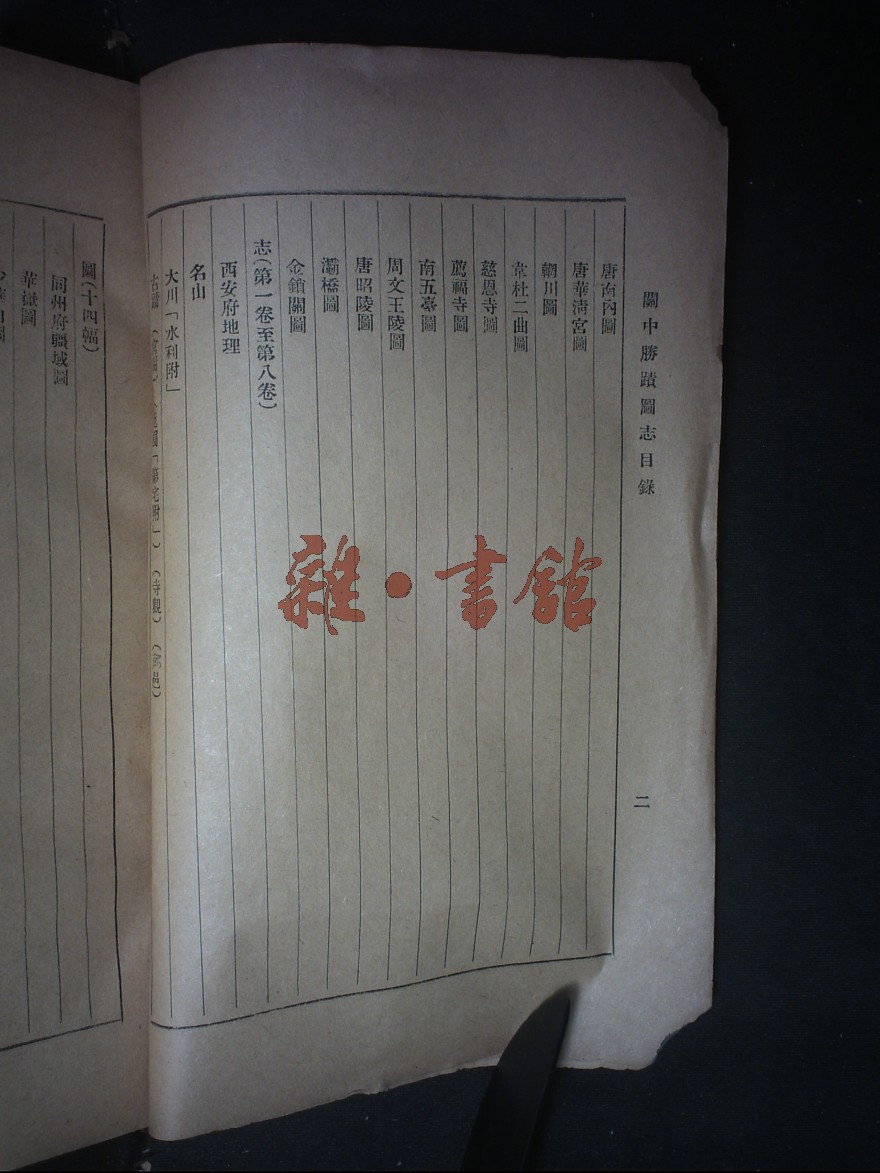 關中勝蹟圖志目錄
二
唐南內圖
唐華淸宮圖
輞川圖
韋杜二曲圖
慈恩寺圖
薦福寺圖
南五臺圖
周文王陵圖
唐昭陵圖
灞橋圖
金鎖關圖
志(第一卷至第八卷)
西安府地理
名山
大川「水利附」
古蹟 「第宅附」) (寺觀)
圖(十四幅)
同州府疆域圖
華嶽圖
雜·書館